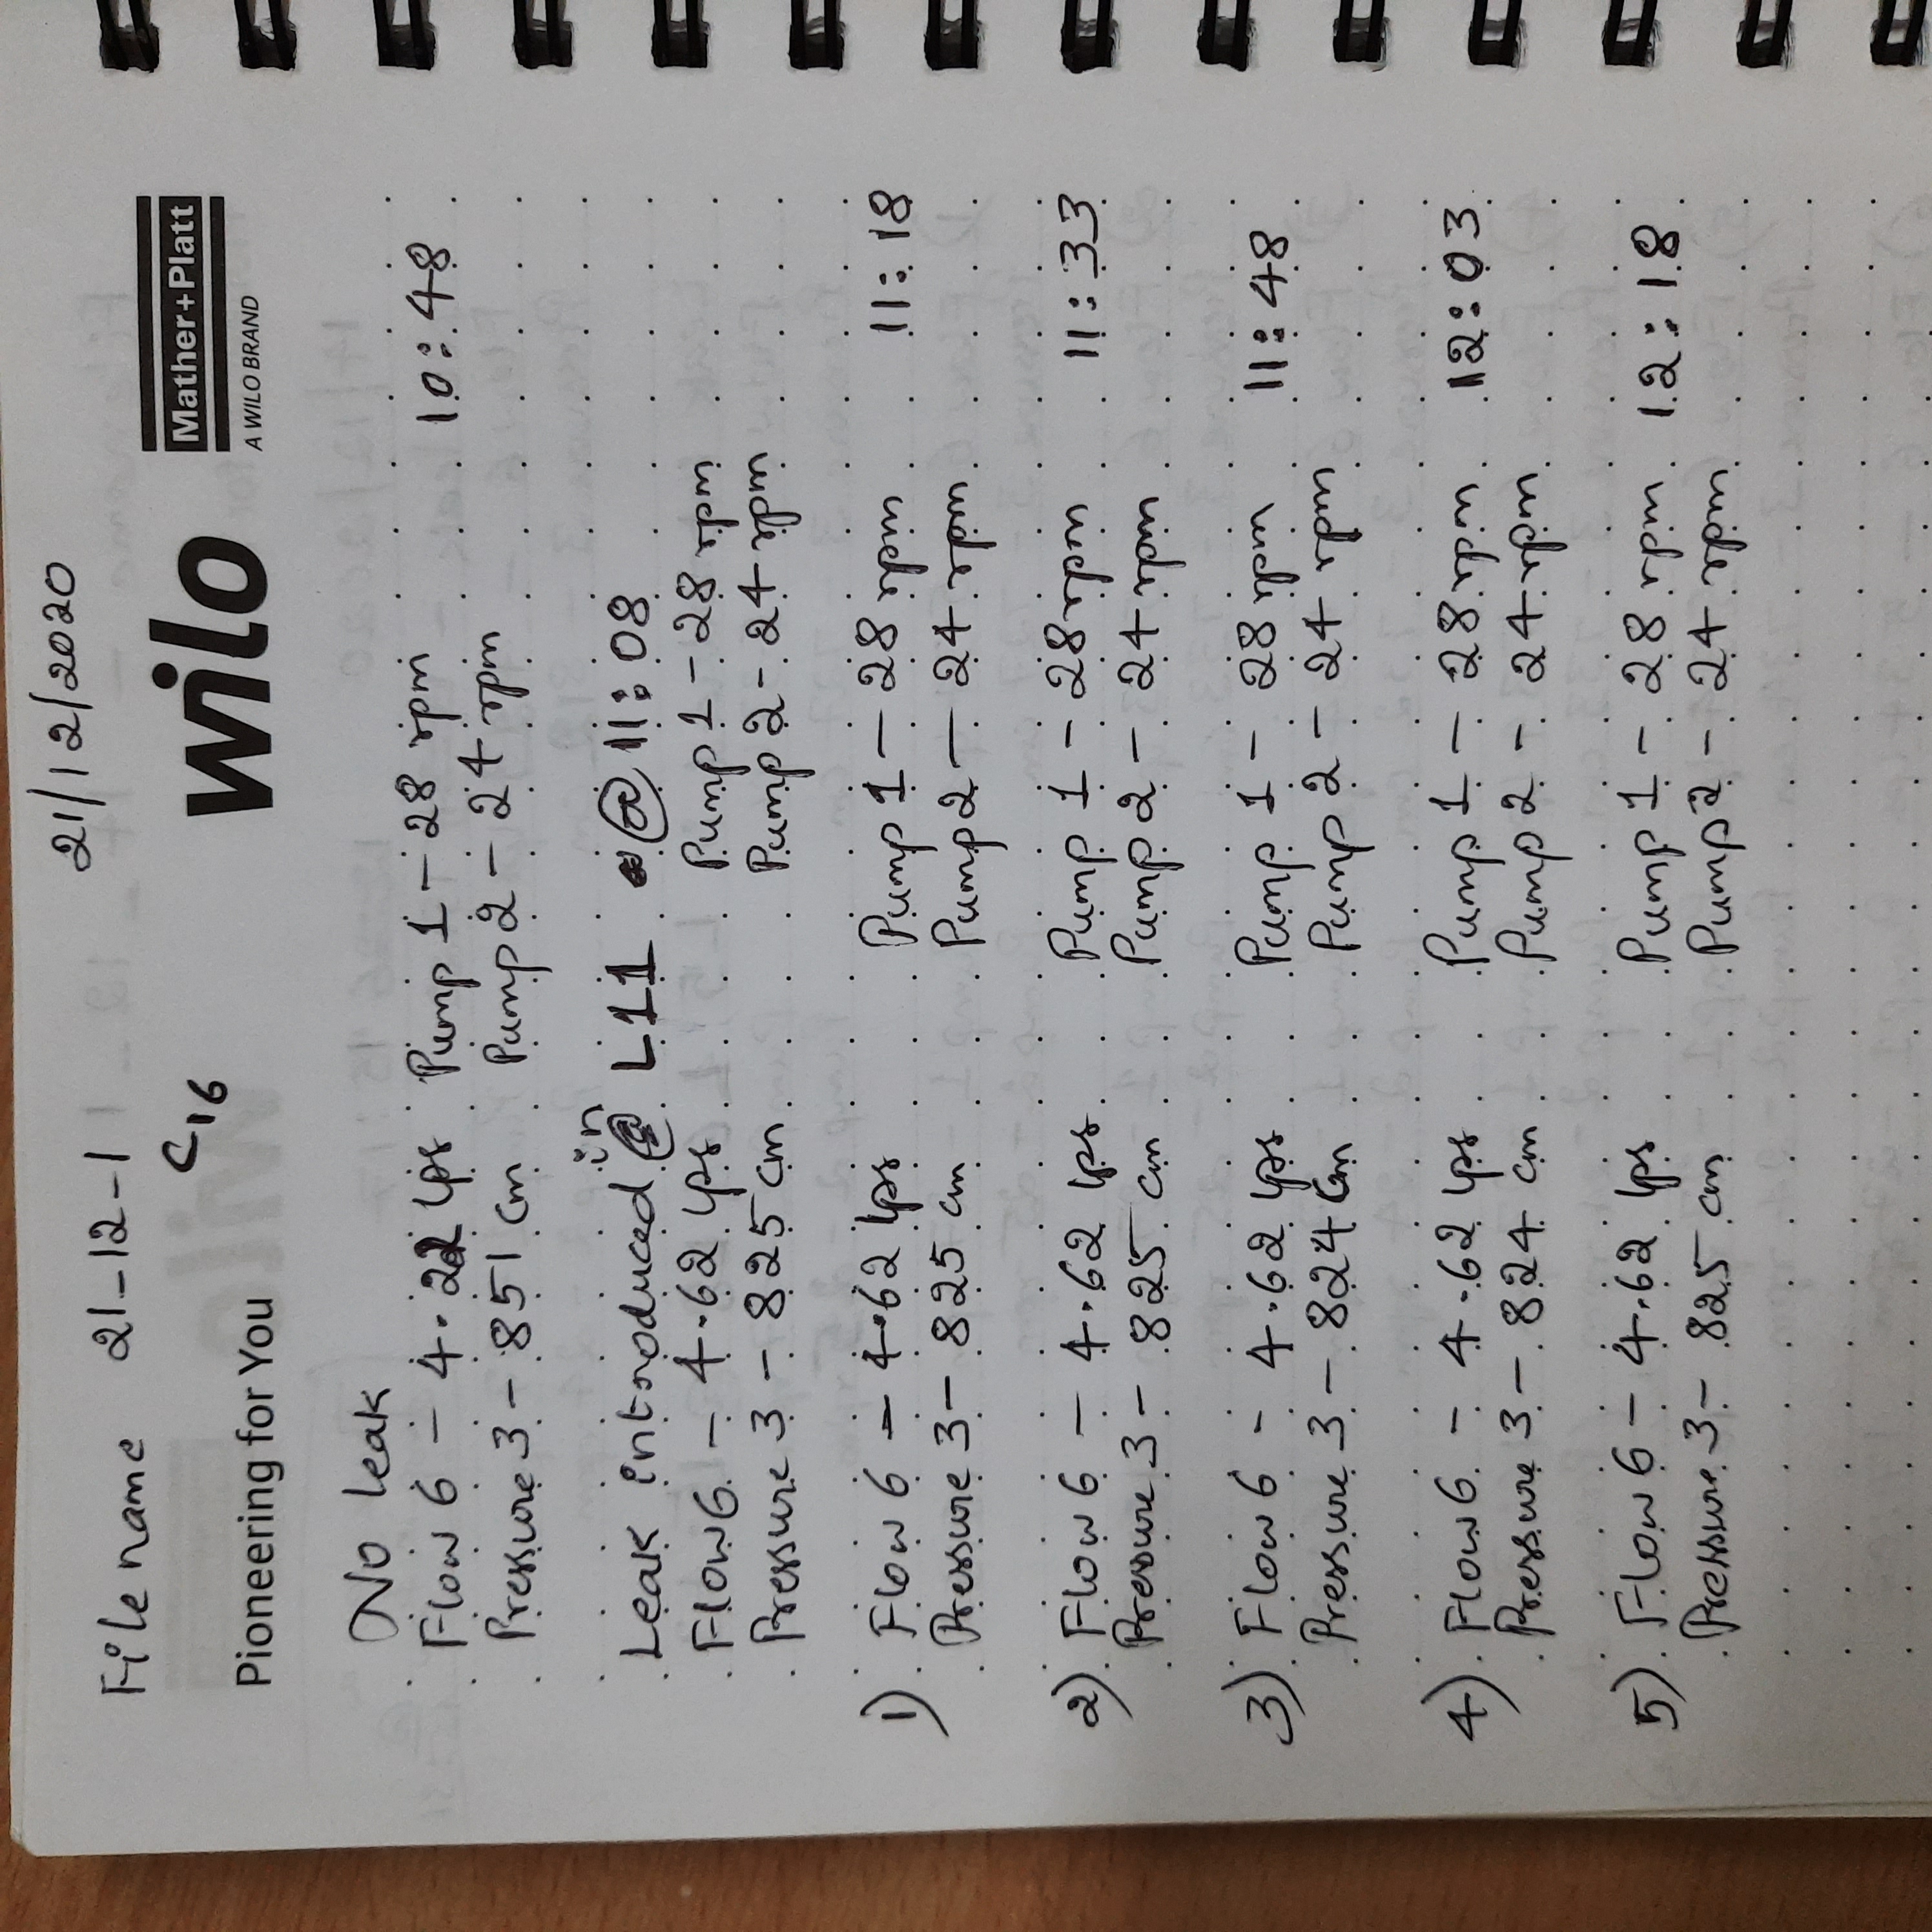 21/12/2020
File name 21-12-1
C16
Pioneering for You
wilo
Mather+Platt
A WILO BRAND
No leak
Flow 6 - 4.22 lps Pump 1 - 28 rpm 10:48
Pressure 3 - 851 cm Pump 2 - 24 rpm
Leak introduced in L11 @ 11:08
Flow 6 - 4.62 lps Pump 1 - 28 rpm
Pressure 3 - 825 cm Pump 2 - 24 rpm
1) Flow 6 - 4.62 lps Pump 1 - 28 rpm 11:18
Pressure 3 - 825 cm Pump 2 - 24 rpm
2) Flow 6 - 4.62 lps Pump 1 - 28 rpm 11:33
Pressure 3 - 825 cm Pump 2 - 24 rpm
3) Flow 6 - 4.62 lps Pump 1 - 28 rpm 11:48
Pressure 3 - 824 cm Pump 2 - 24 rpm
4) Flow 6 - 4.62 lps Pump 1 - 28 rpm 12:03
Pressure 3 - 824 cm Pump 2 - 24 rpm
5) Flow 6 - 4.62 lps Pump 1 - 28 rpm 12:18
Pressure 3 - 825 cm Pump 2 - 24 rpm